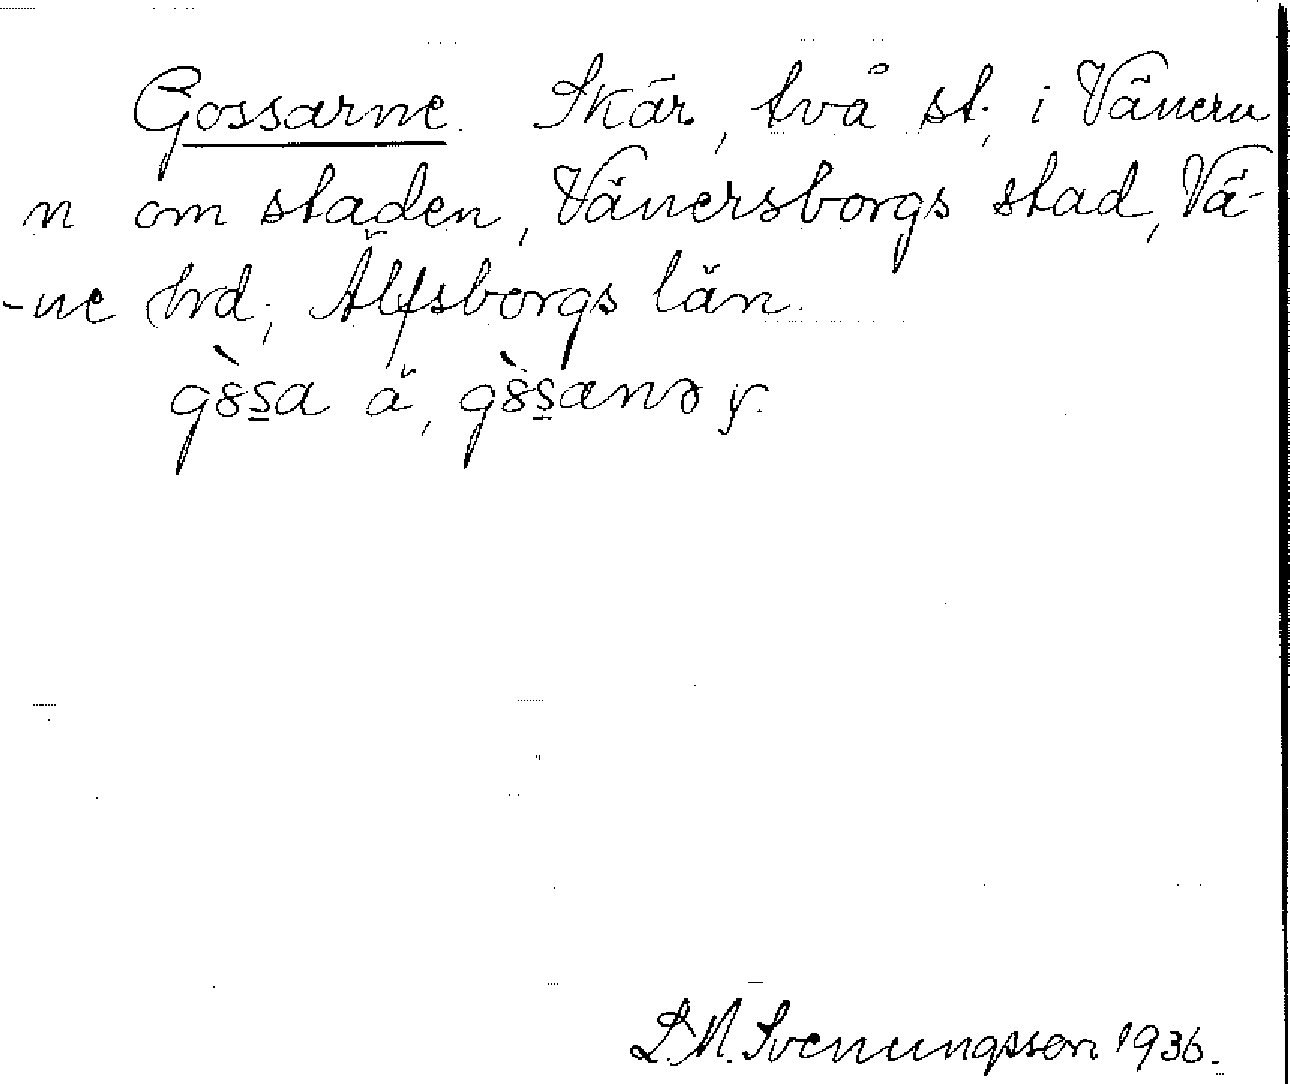 Gossarne. Skär, två st, i Vänern
n om staden, Vänersborgs stad, Vä-
-ne hrd; Älfsborgs län.
gȣ̀s̱a ä, gȣ̀s̱anə y.
L.M. Svenungsson 1936.